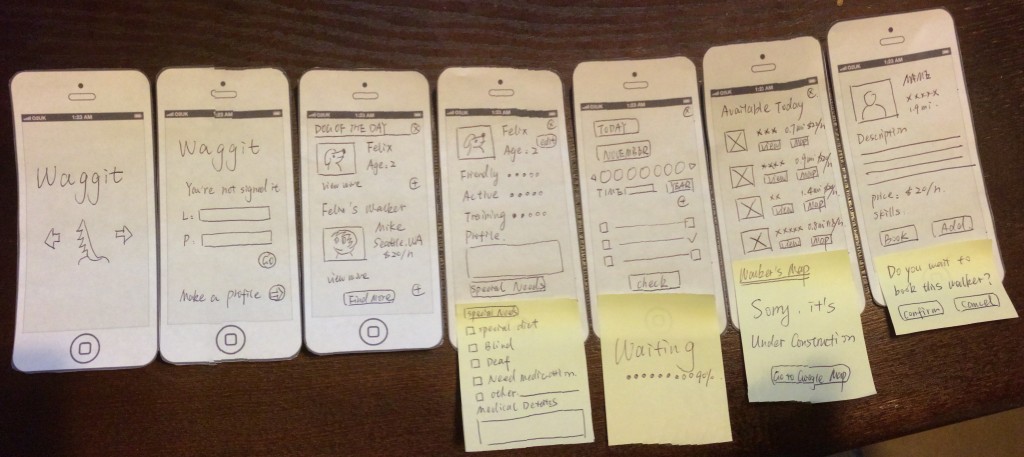 1:03 AM
Waggit
1:03 AM
Waggit
You're not signed it
L:
P:
GO
Make a profile
1:03 AM
DOG OF THE DAY
Felix
Age: 2
view more
Felix's Walker
Mike
Seattle, WA
$20/h
view more
Find More
1:03 AM
Felix
Age: 2
Edit
Friendly
Active
Training
Profile.
Special Needs
Special Needs
special diet
Blind
Deaf
Need medication
other
Medical Details
1:03 AM
TODAY
NOVEMBER
TIME:
YEAR
check
Waiting
40%
1:03 AM
Available Today
xxx 0.7mi $21/h
View Map
xxxx
View Map
xx
View Map
xxxxx
View Map
Walker's Map
Sorry, it's
Under Construction
Go to Google Map
1:03 AM
NAME
xxxx
1.9 mi.
Description
price: $20/h.
skills.
Book Add
Do you want to
book this walker?
Confirm Cancel